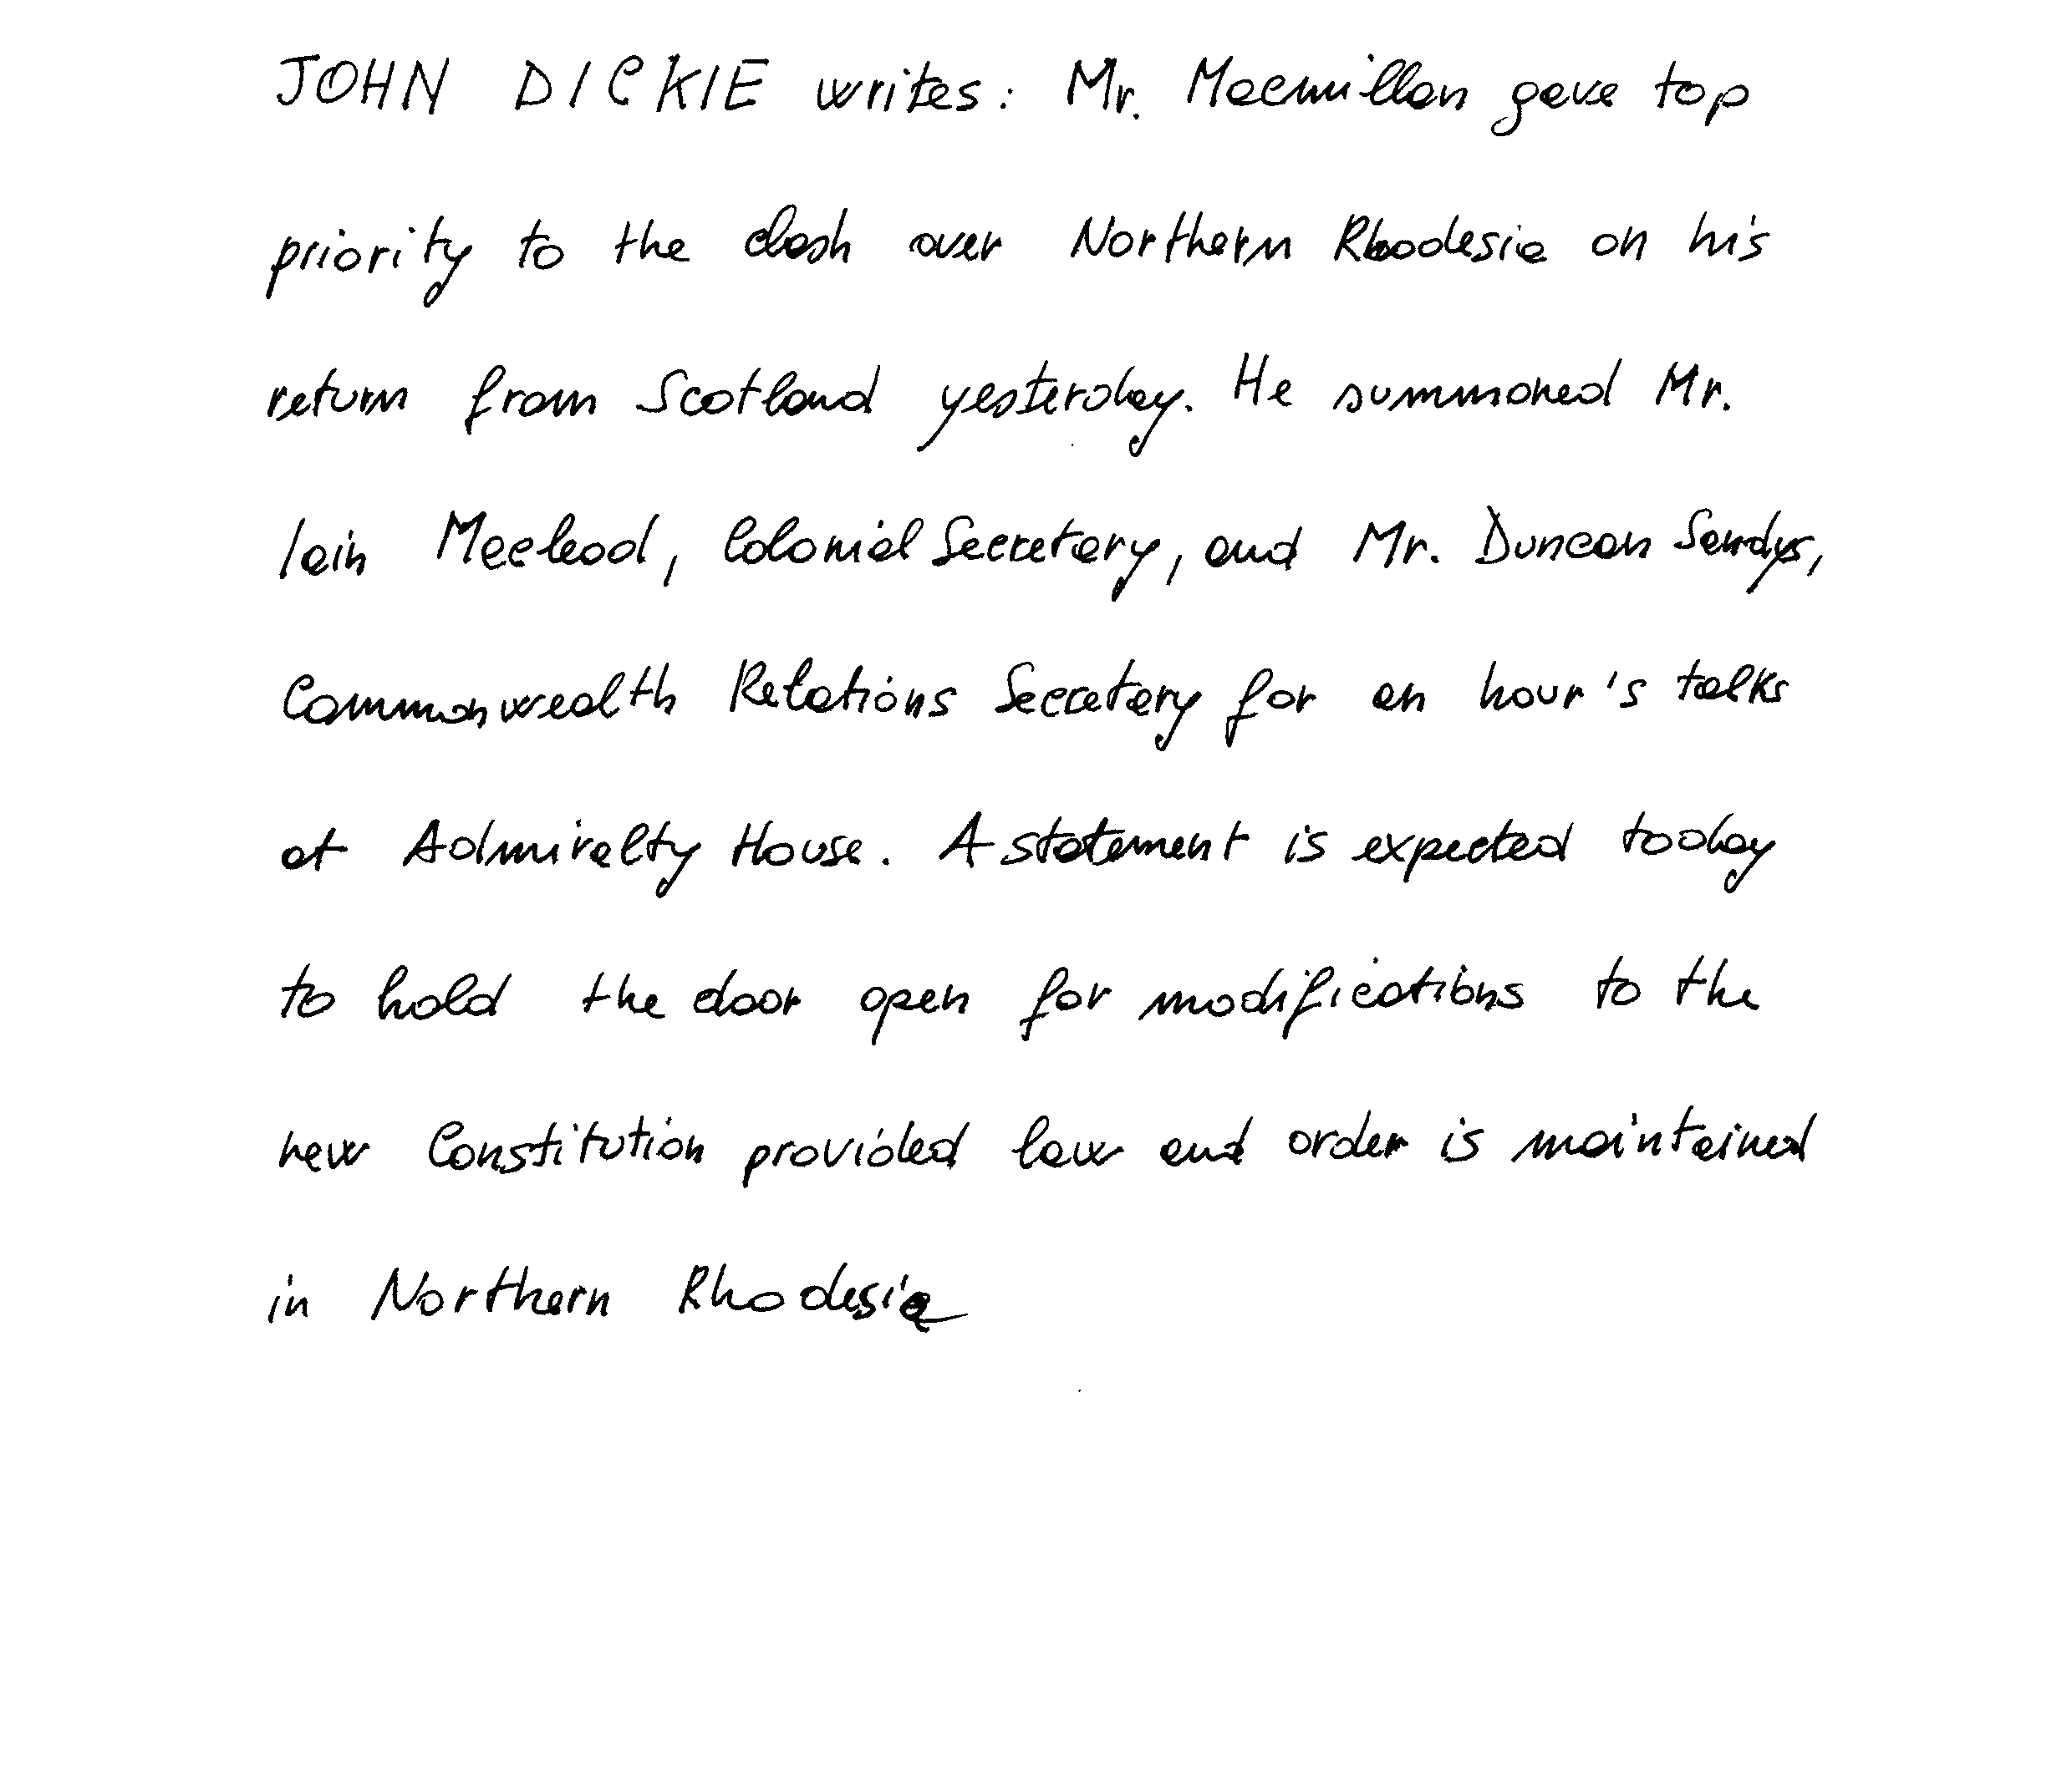 JOHN DICKIE writes: Mr. Macmillan gave top
priority to the clash over Northern Rhodesia on his
return from Scotland yesterday. He summoned Mr.
Iain Macleod, Colonial Secretary, and Mr. Duncan Sandys,
Commonwealth Relations Secretary for an hour's talks
at Admiralty House. A statement is expected today
to hold the door open for modifications to the
new Constitution provided law and order is maintained
in Northern Rhodesia